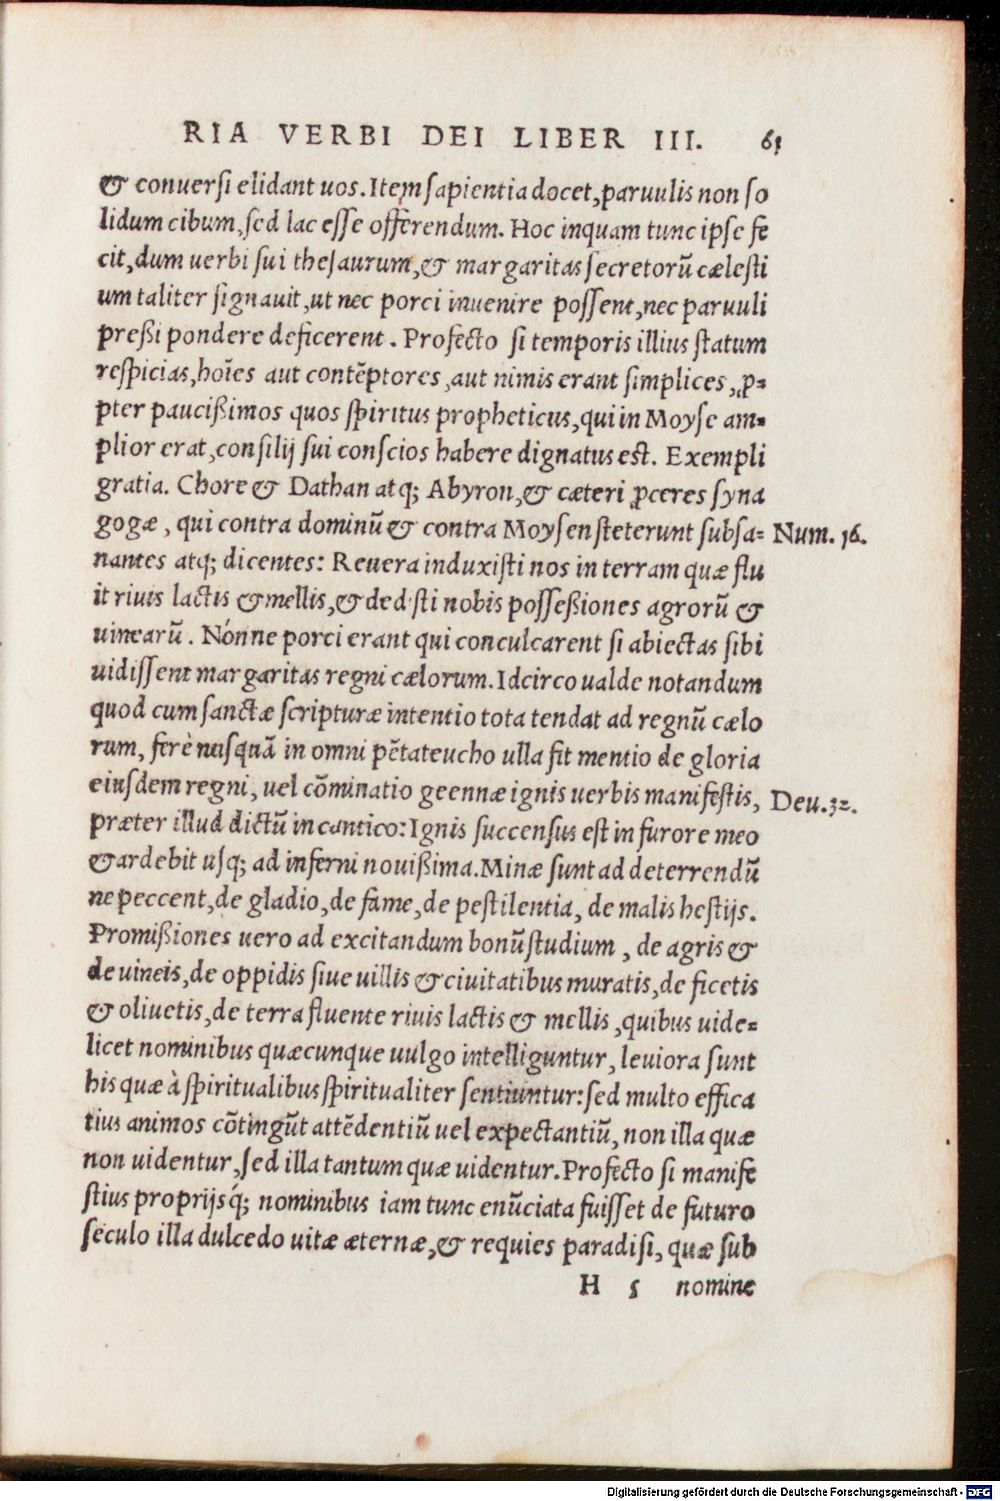 RIA VERBI DEI LIBER III. 61
& conuersi elidant uos. Item sapientia docet, paruulis non so
lidum cibum, sed lac esse offerendum. Hoc inquam tunc ipse fe
cit, dum uerbi sui thesaurum, & margaritas secretorū cælesti
um taliter signauit, ut nec porci inuenire possent, nec paruuli
preßi pondere deficerent. Profecto si temporis illius statum
respicias, hoīes aut contēptores, aut nimis erant simplices, ꝓ=
pter paucißimos quos spiritus propheticus, qui in Moyse am=
plior erat, consilij sui conscios habere dignatus est. Exempli
gratia. Chore & Dathan atq; Abyron, & cæteri ꝓceres syna
gogæ, qui contra dominū & contra Moysen steterunt subsa= Num. 16.
nantes atq; dicentes: Reuera induxisti nos in terram quæ flu
it riuis lactis & mellis, & ded sti nobis posseßiones agrorū &
uinearū. Nónne porci erant qui conculcarent si abiectas sibi
uidissent margaritas regni cælorum. Idcirco ualde notandum
quod cum sanctæ scripturæ intentio tota tendat ad regnū cælo
rum, ferè nusquā in omni pētateucho ulla fit mentio de gloria
eiusdem regni, uel cōminatio geennæ ignis uerbis manifestis, Deu. 32.
præter illud dictū in cantico: Ignis succensus est in furore meo
& ardebit usq; ad inferni nouißima. Minæ sunt ad deterrendū
ne peccent, de gladio, de fame, de pestilentia, de malis bestijs.
Promißiones uero ad excitandum bonū studium, de agris &
de uineis, de oppidis siue uillis & ciuitatibus muratis, de ficetis
& oliuetis, de terra fluente riuis lactis & mellis, quibus uide=
licet nominibus quæcunque uulgo intelliguntur, leuiora sunt
his quæ à spiritualibus spiritualiter sentiuntur: sed multo effica
tius animos cōtingūt attēdentiū uel expectantiū, non illa quæ
non uidentur, sed illa tantum quæ uidentur. Profecto si manife
stius proprijsq́; nominibus iam tunc enūciata fuisset de futuro
seculo illa dulcedo uitæ æternæ, & requies paradisi, quæ sub
H 5 nomine
Digitalisierung gefördert durch die Deutsche Forschungsgemeinschaft - DFG